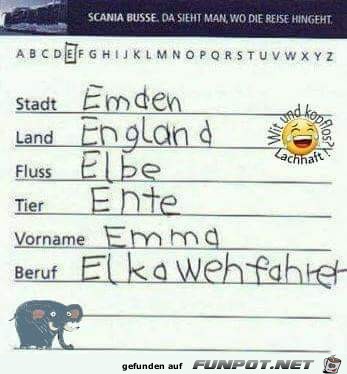 SCANIA BUSSE. DA SIEHT MAN, WO DIE REISE HINGEHT.
A B C D E F G H I J K L M N O P Q R S T U V W X Y Z
Stadt Emden
Land England
Fluss Elbe
Tier Ente
Vorname Emma
Beruf Elkawehfahrer
Witz und kopflos?!
Lachhaft
gefunden auf FUNPOT.NET